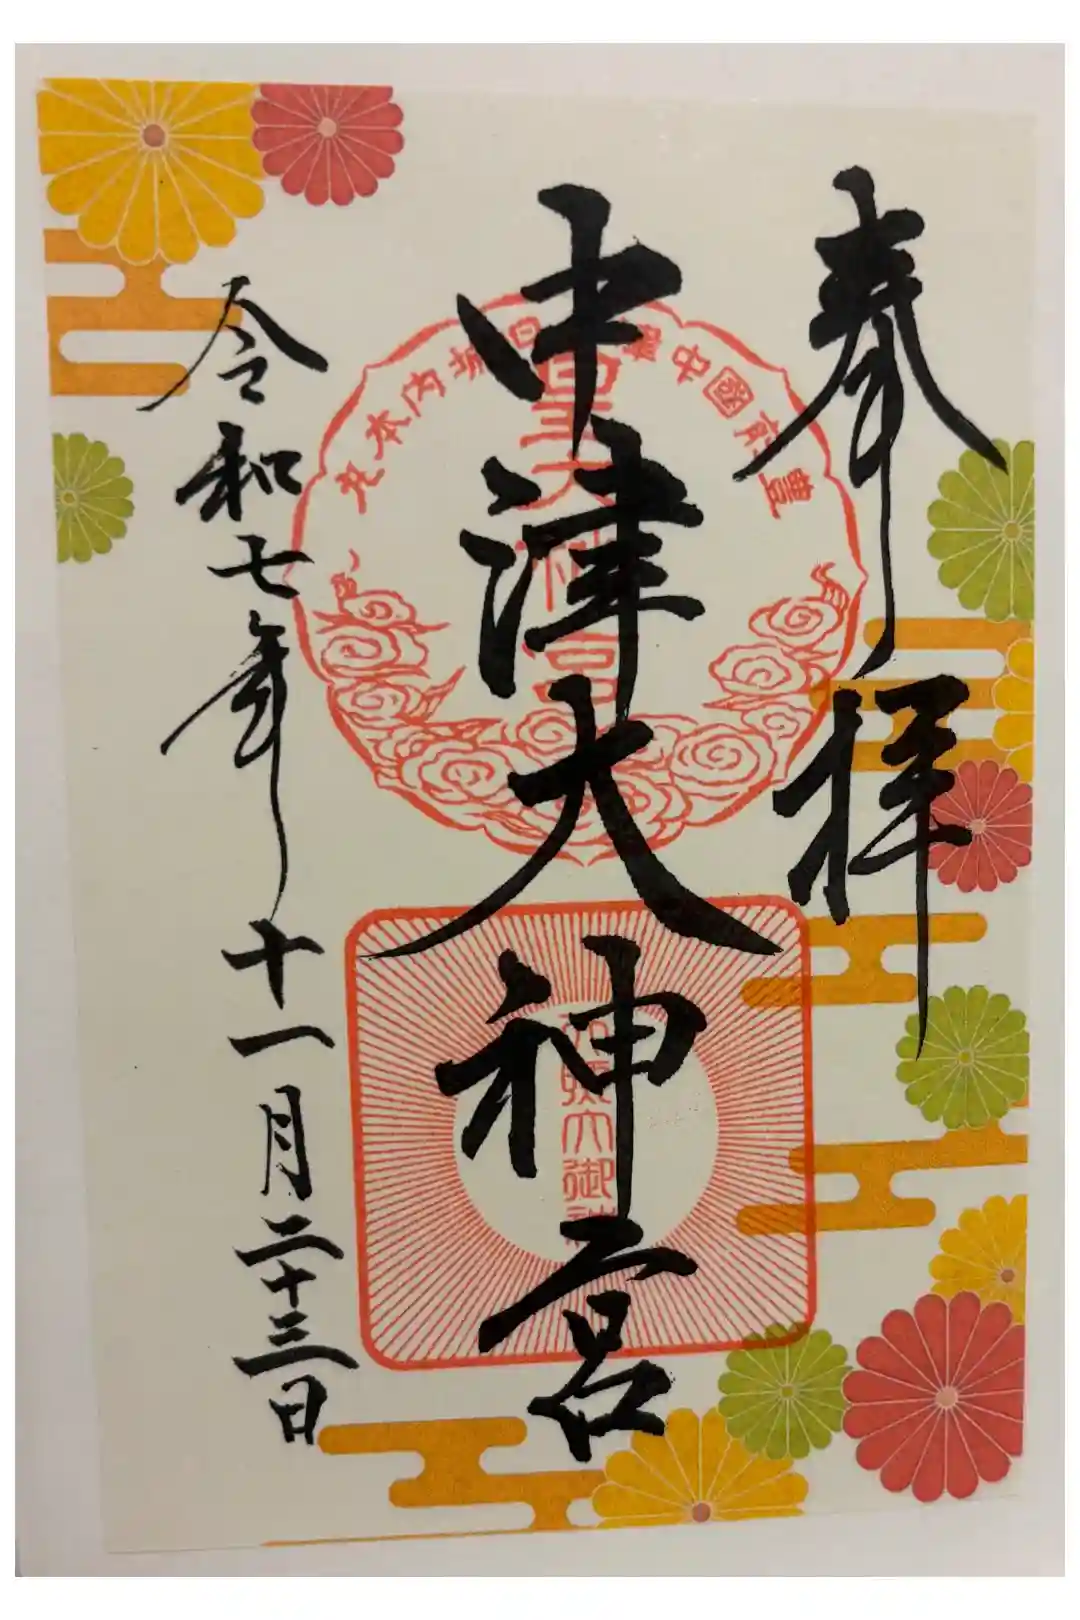 奉拝
中津大神宮
豊前國中津
城内本丸
大御神
令和七年十一月二十三日